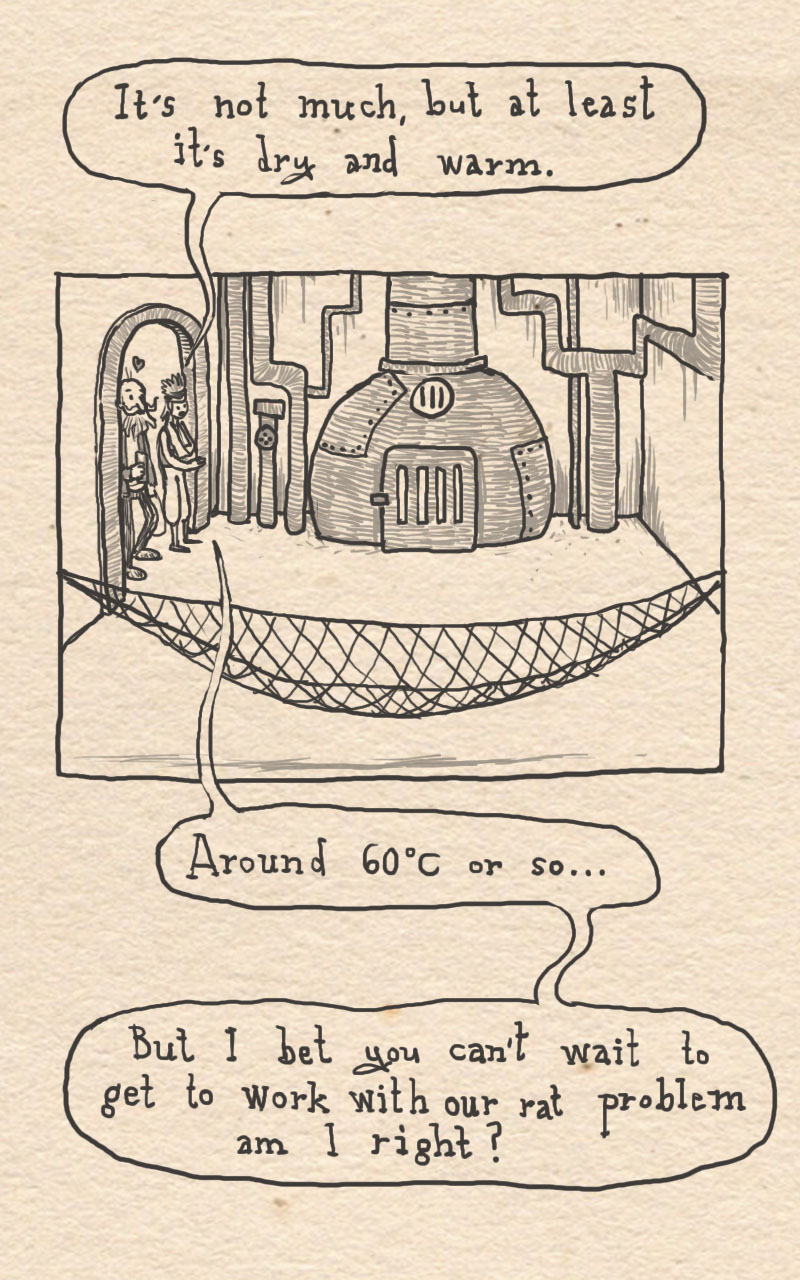 It's not much, but at least
it's dry and warm.
Around 60°C or so...
But I bet you can't wait to
get to work with our rat problem
am I right?